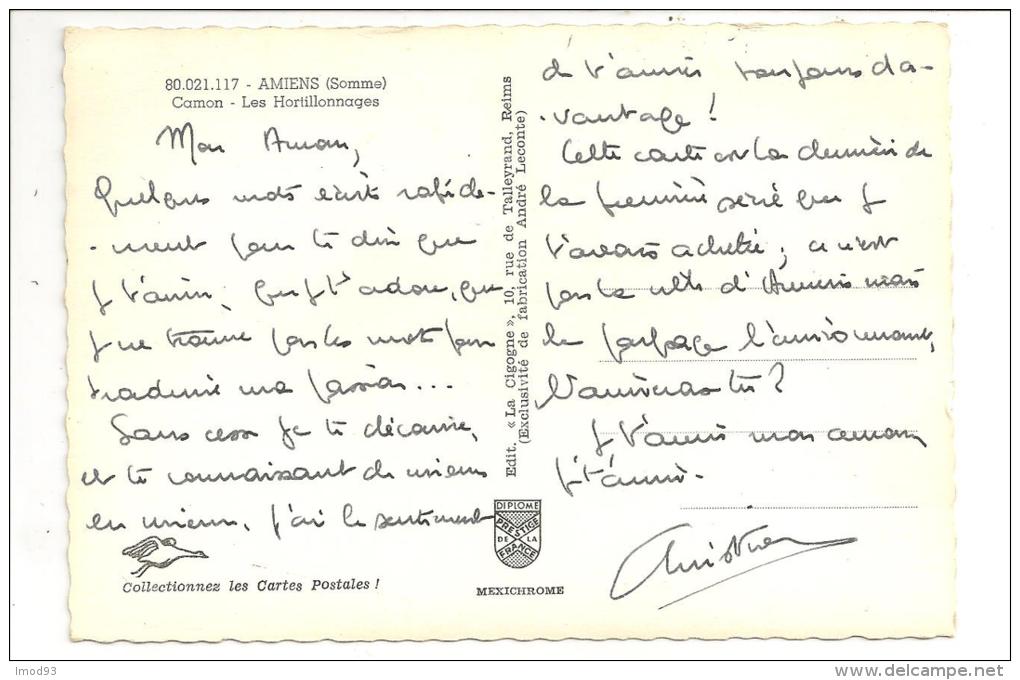 80.021.117 - AMIENS (Somme)
Camon - Les Hortillonnages
Mon Amour,
Quelques mots écrits rapide-
-ment pour te dire que
je t'aime, que je t'adore, que
je ne trouve pas les mots pour
traduire ma passion...
Sans cesse je te découvre,
et te connaissant de mieux
en mieux, j'ai le sentiment
Collectionnez les Cartes Postales !
Edit. « La Cigogne », 10, rue de Talleyrand, Reims
(Exclusivité de fabrication André Leconte)
DIPLOME
PRESTIGE
DE LA
FRANCE
MEXICHROME
de t'aimer toujours da-
-vantage !
Cette carte est la dernière de
la première série que je
t'avais achetée ; ce n'est
pas la ville d'Amiens mais
le paysage l'environnant,
L'aimeras tu ?
Je t'aime mon amour
je t'aime.
Christian
lmod93
www.delcampe.net